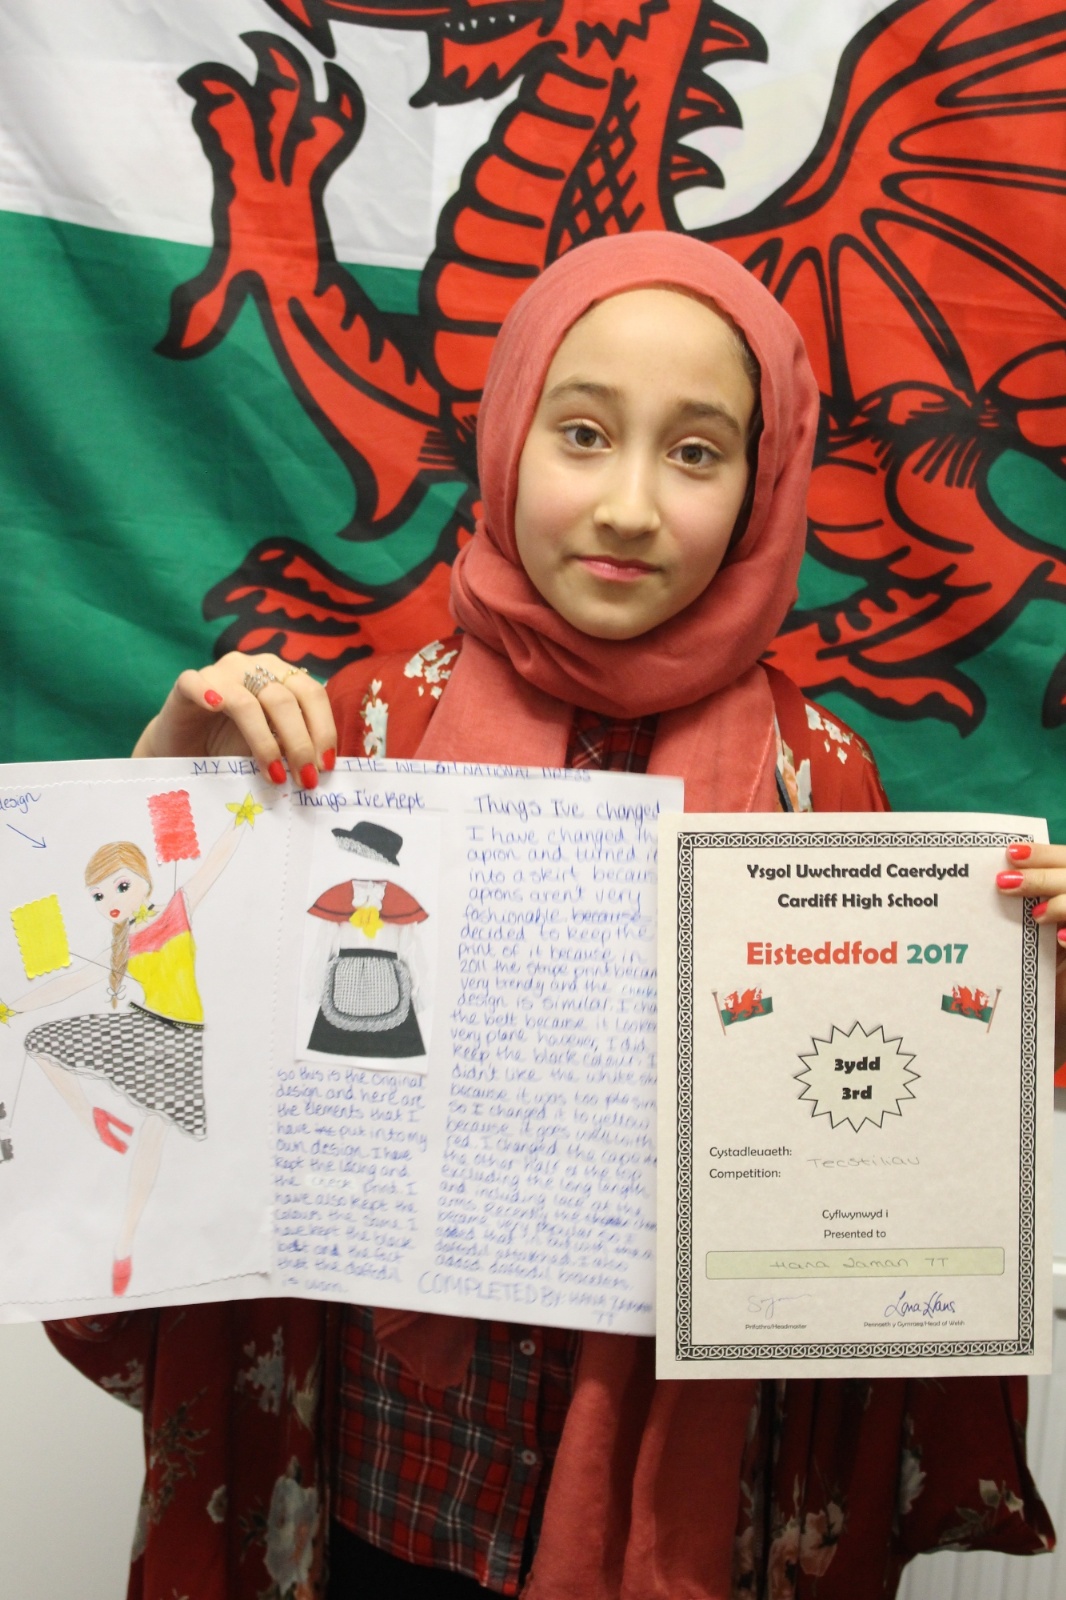 MY VER THE WELSH NATIONAL DRESS
design
Things I've Kept
so this is the original
design and here are
the elements that I
have put into my
own design. I have
kept the lacing and
the check print. I
have also kept the
colours the same I
have kept the black
belt and the fact
that the daffodil
is worn.
Things I've changed
I have changed th
apron and turned it
into a skirt becaus
aprons aren't very
fashionable because
decided to keep the
print of it because in
2011 the stripe print becam
very trendy and the check
design is similar. I cha
the belt because it looked
very plane however, I did
keep the black colour. I
didn't like the white
because it was too
So I changed it to yellow
because it goes well with
red. I changed the cape
the other half of the top
excluding the long length
and including lace at the
arms. Recently the
became very popular so I
added that in
daffodil attatched. I also
added daffodil bracelets.
COMPLETED BY: HANA ZAMAN
7T
Ysgol Uwchradd Caerdydd
Cardiff High School
Eisteddfod 2017
3ydd
3rd
Cystadleuaeth:
Competition: Tecstiliau
Cyflwynwyd i
Presented to
Hana Zaman 7T
Lona Evans
Prifathro/Headmaster
Pennaeth y Gymraeg/Head of Welsh